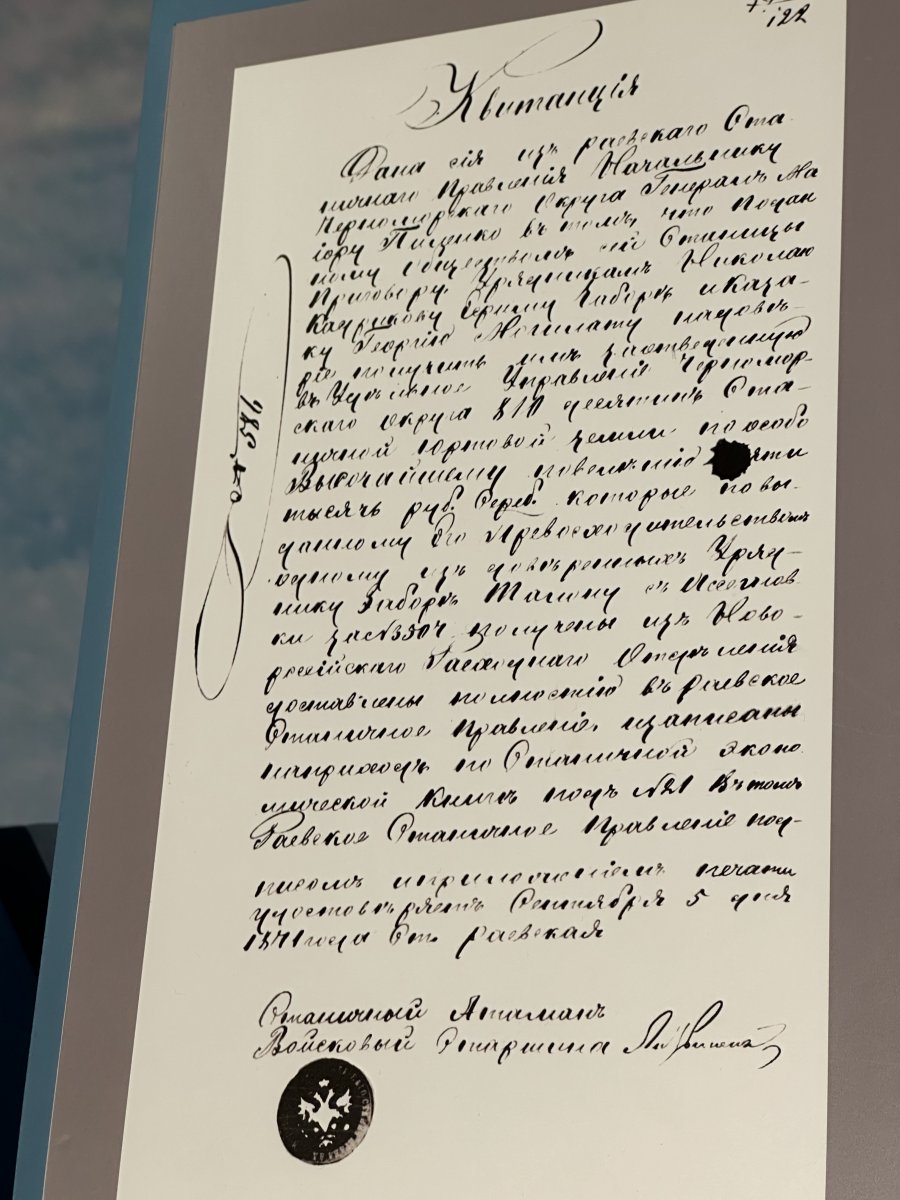 122
Квитанція
Дана сія изъ раевскаго Ста
ничнаго Правленія Начальнику
Черноморскаго Округа Генералъ Ма
іору Пиленко въ томъ, что Подан
ному Обществомъ сей Станицы
Приговору, Урядникамъ Николаю
Сернему Забора и Каза-
ку Георгію Могилату
получить
въ Управленіе Черномор-
скаго округа 810 десятинъ Ста-
ничной Юртовой земли по особо
Высочайшему повеленію яти
тысячъ руб. Сереб. которые по вы-
данному Его Превосходительствомъ
одному изъ доверенныхъ Уряд-
нику Заборъ Талону съ Ассегнов-
ки за №3304 получены изъ Ново-
россійскаго Расходнаго Отделенія
доставлены полностію въ раевское
Станичное Правленіе, изаписаны
наприходъ по Станичной эконо
мической книгъ подъ №21 Вътомъ
Раевское Станичное Правленіе под-
писомъ иприложеніемъ печати
удостоверяетъ Сентября 5 дня
1871 года Ст. раевская
Станичный Атаманъ
Войсковый Старшина